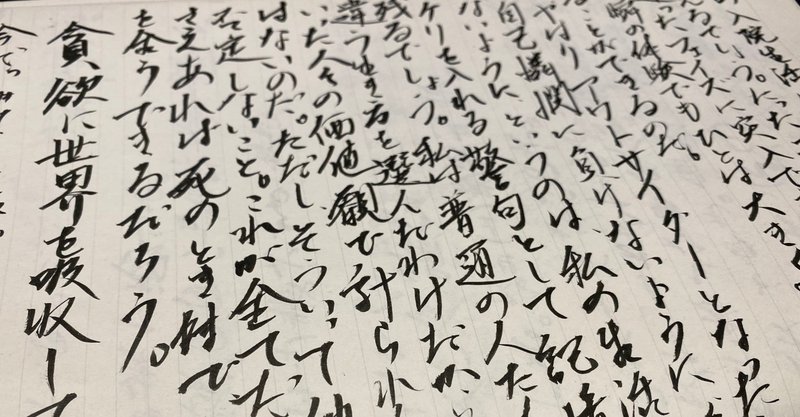 の入院生活
ったフェイズに突入で
瞬の体験でもひとは大き
ることができるのだ。
やはりアウトサイダーとなった
自己憐憫に負けないように
ないように、というのは、私の生活
ケリを入れる警句として記
残るでしょう。私は普通の人た
違う生き方を選んだわけだから
いた人々の価値観で計られ
はないのだ。ただしそういって他
否定しないこと。これが全てだ
さえあれば死のとき
を全うできるだろう。
貪欲に世界を吸収して